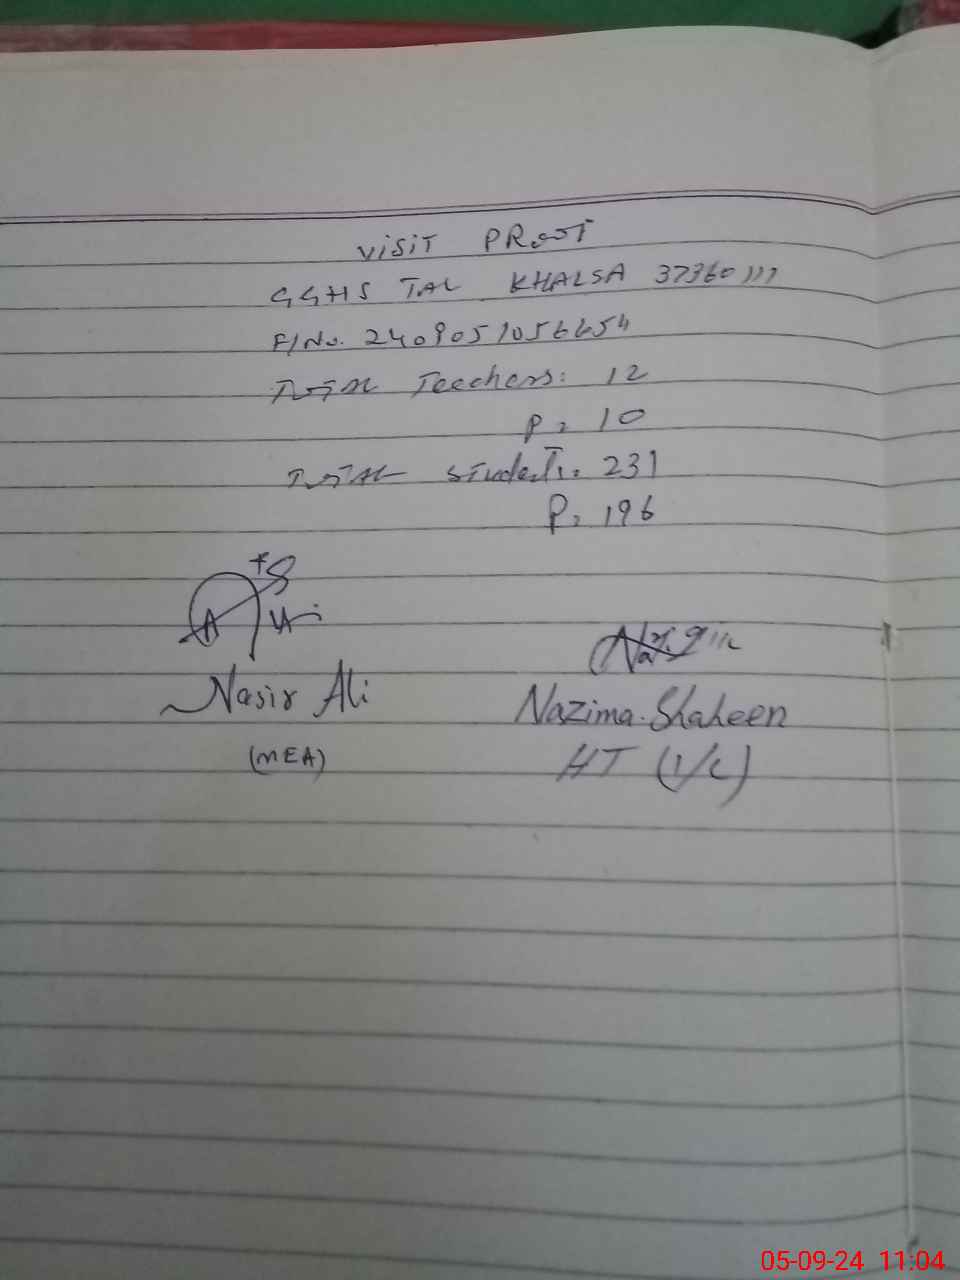 VISIT PROOF
GGHS TAL KHALSA 37360111
F/No. 2409051056654
TOTAL Teachers: 12
P= 10
TOTAL Students= 231
P= 196
Nasir Ali
Nazima Shaheen
(MEA)
HT (I/C)
05-09-24 11:04